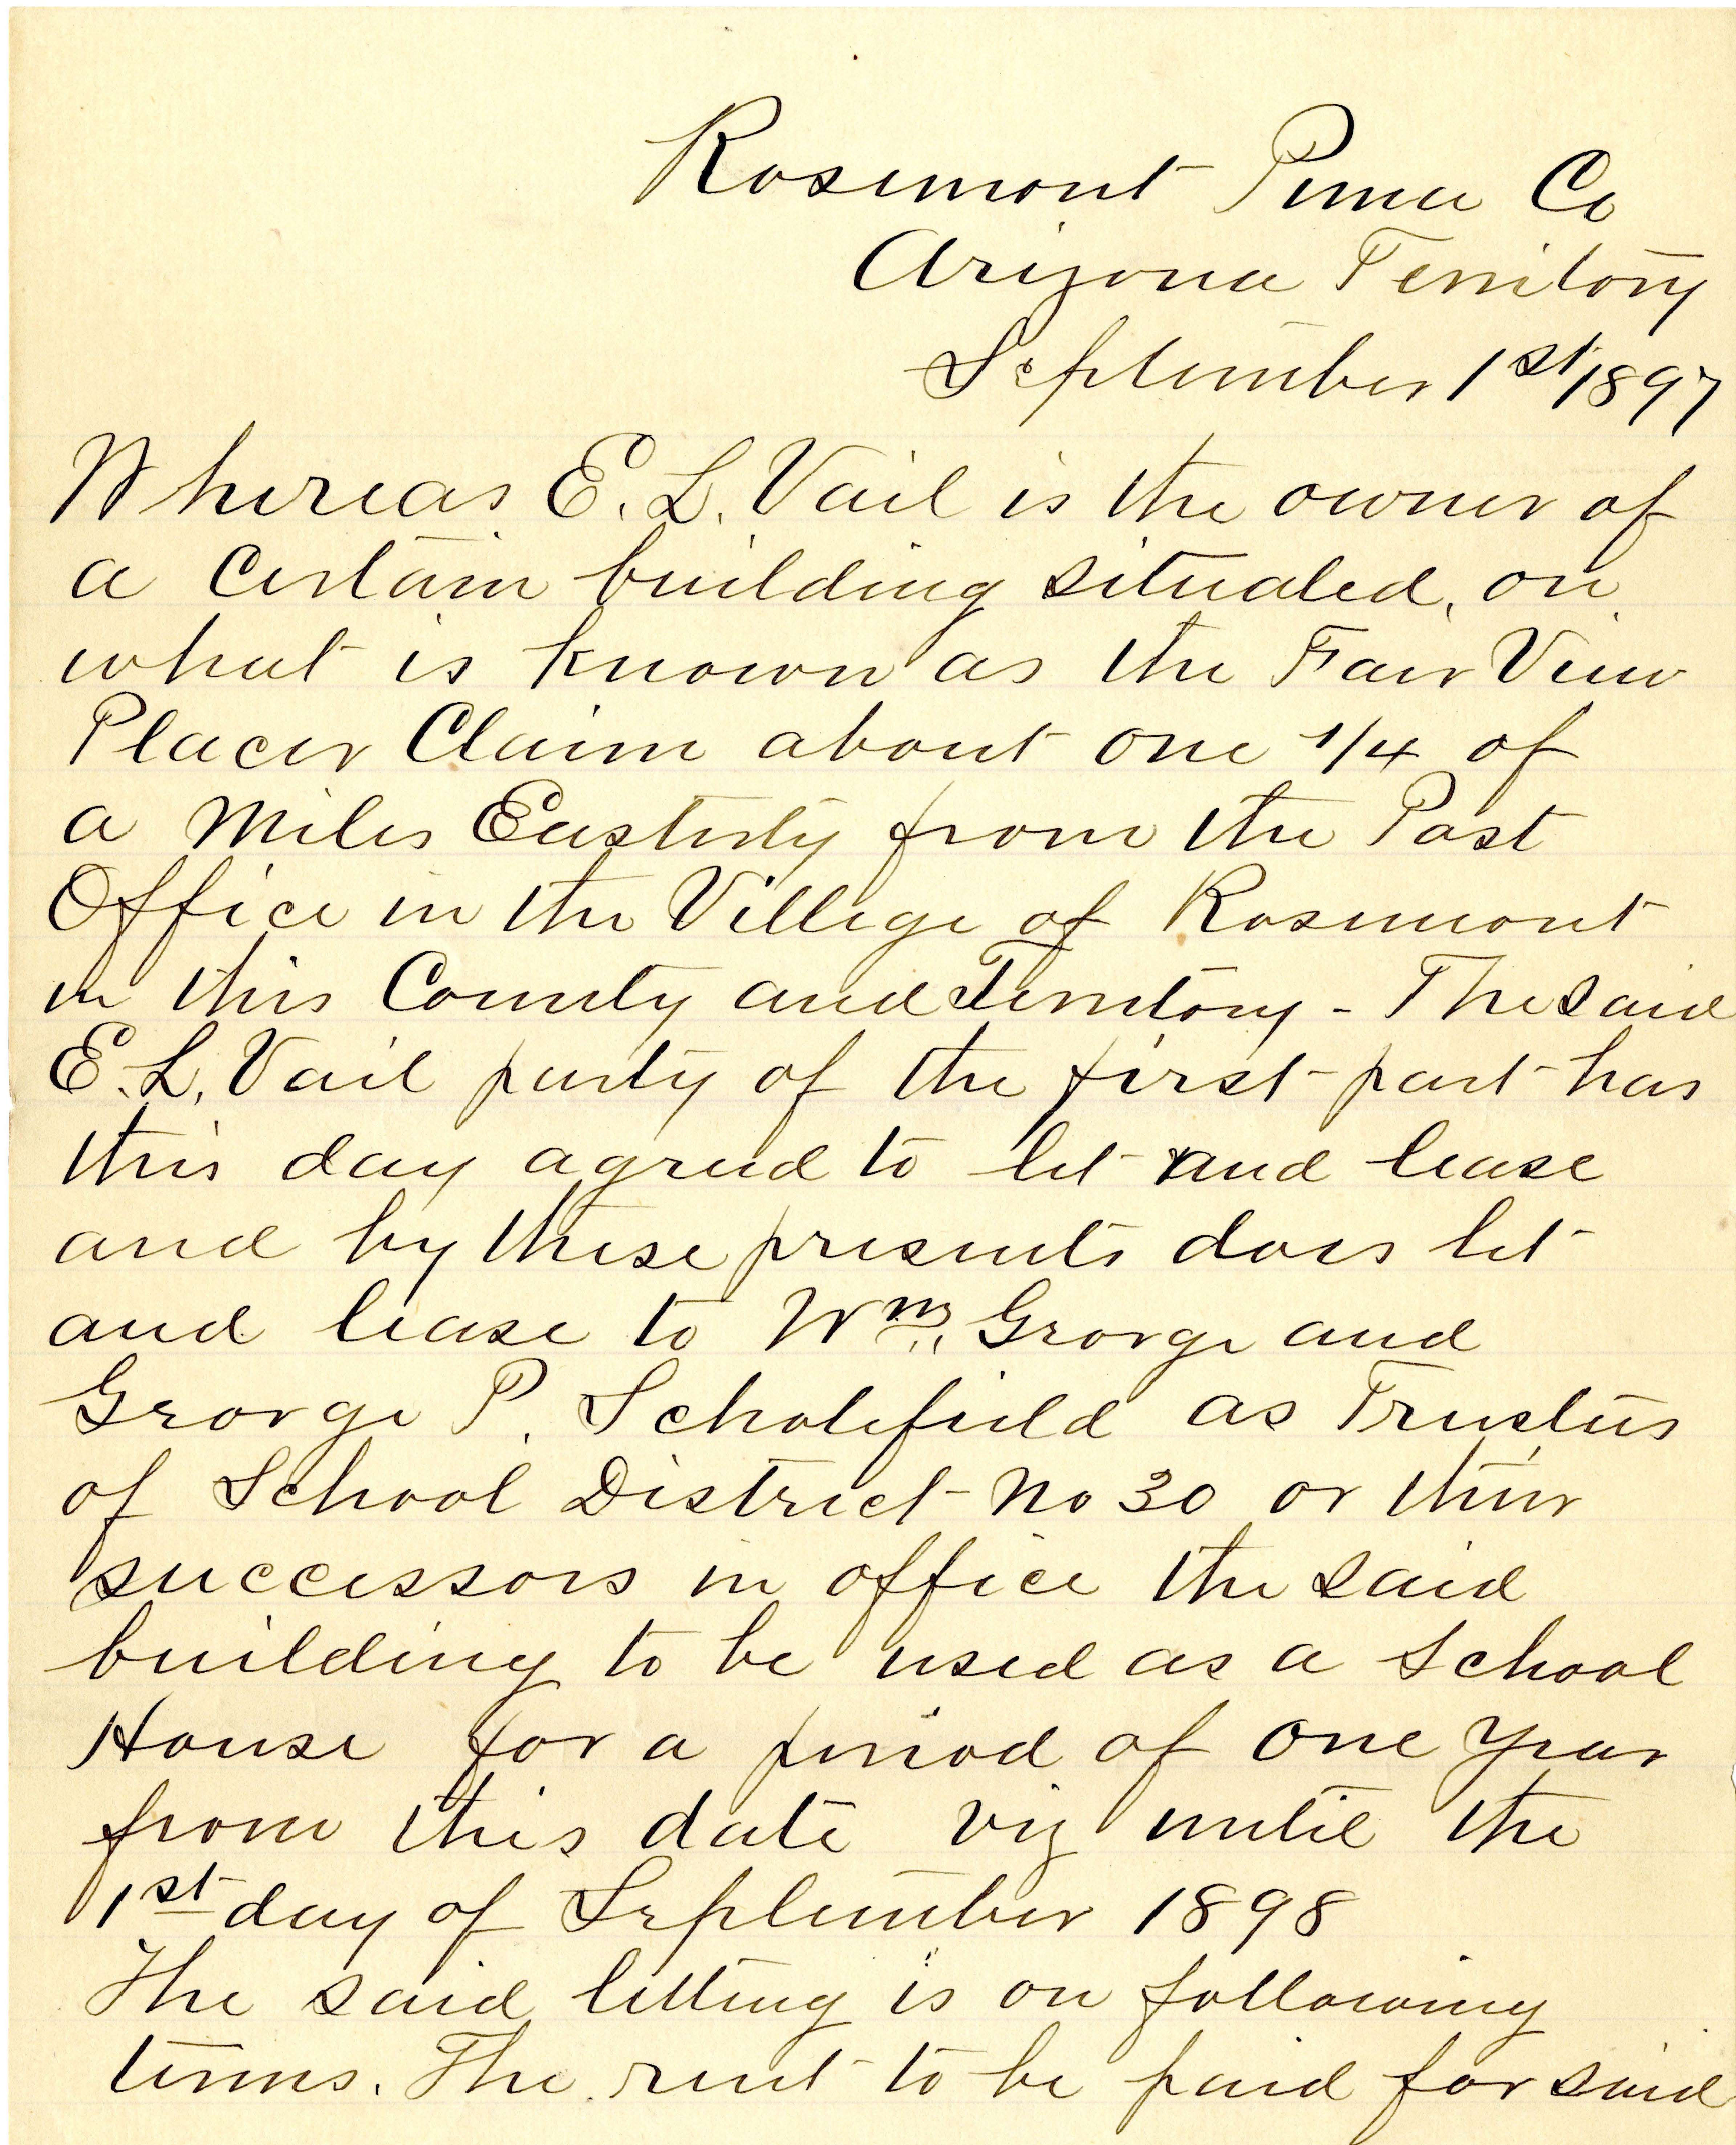 Rosemont Pima Co
Arizona Territory
September 1st 1897
Whereas E. L. Vail is the owner of
a certain building situated, on
what is known as the Fair View
Placer Claim about one 1/4 of
a Miles Easterly from the Post
Office in the Villege of Rosemont
in this County and Territory - The said
E. L. Vail party of the first part has
this day agreed to let and lease
and by these presents does let
and lease to Wm. George and
George P. Scholefield as Trustees
of School District No 30 or their
successors in office the said
building to be used as a School
House for a period of one year
from this date viz until the
1st day of September 1898
The said letting is on following
terms. The rent to be paid for said